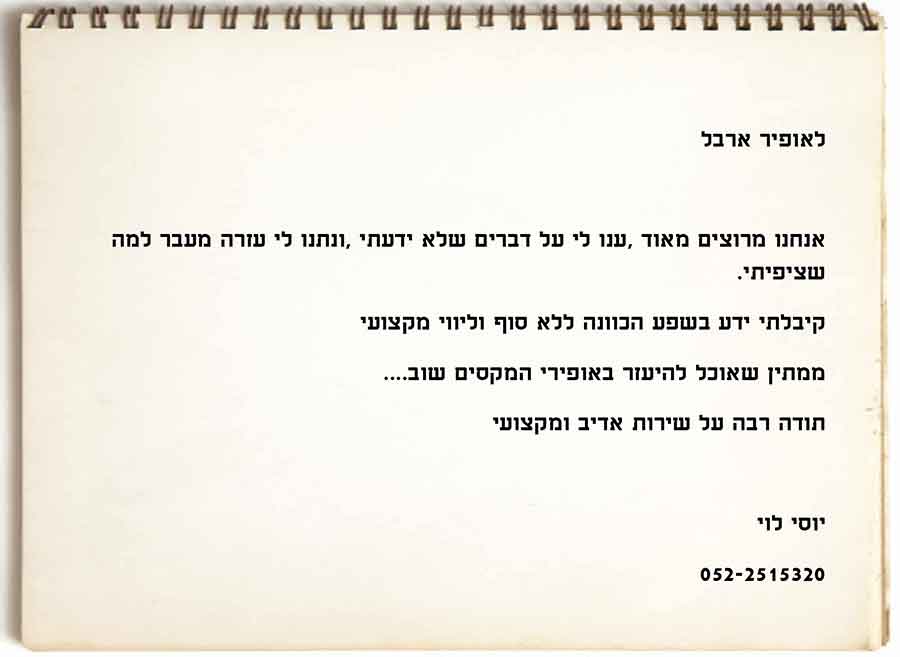 לאופיר ארבל
אנחנו מרוצים מאוד ,ענו לי על דברים שלא ידעתי ,ונתנו לי עזרה מעבר למה
שציפיתי.
קיבלתי ידע בשפע הכוונה ללא סוף וליווי מקצועי
ממתין שאוכל להיעזר באופירי המקסים שוב....
תודה רבה על שירות אדיב ומקצועי
יוסי לוי
052-2515320